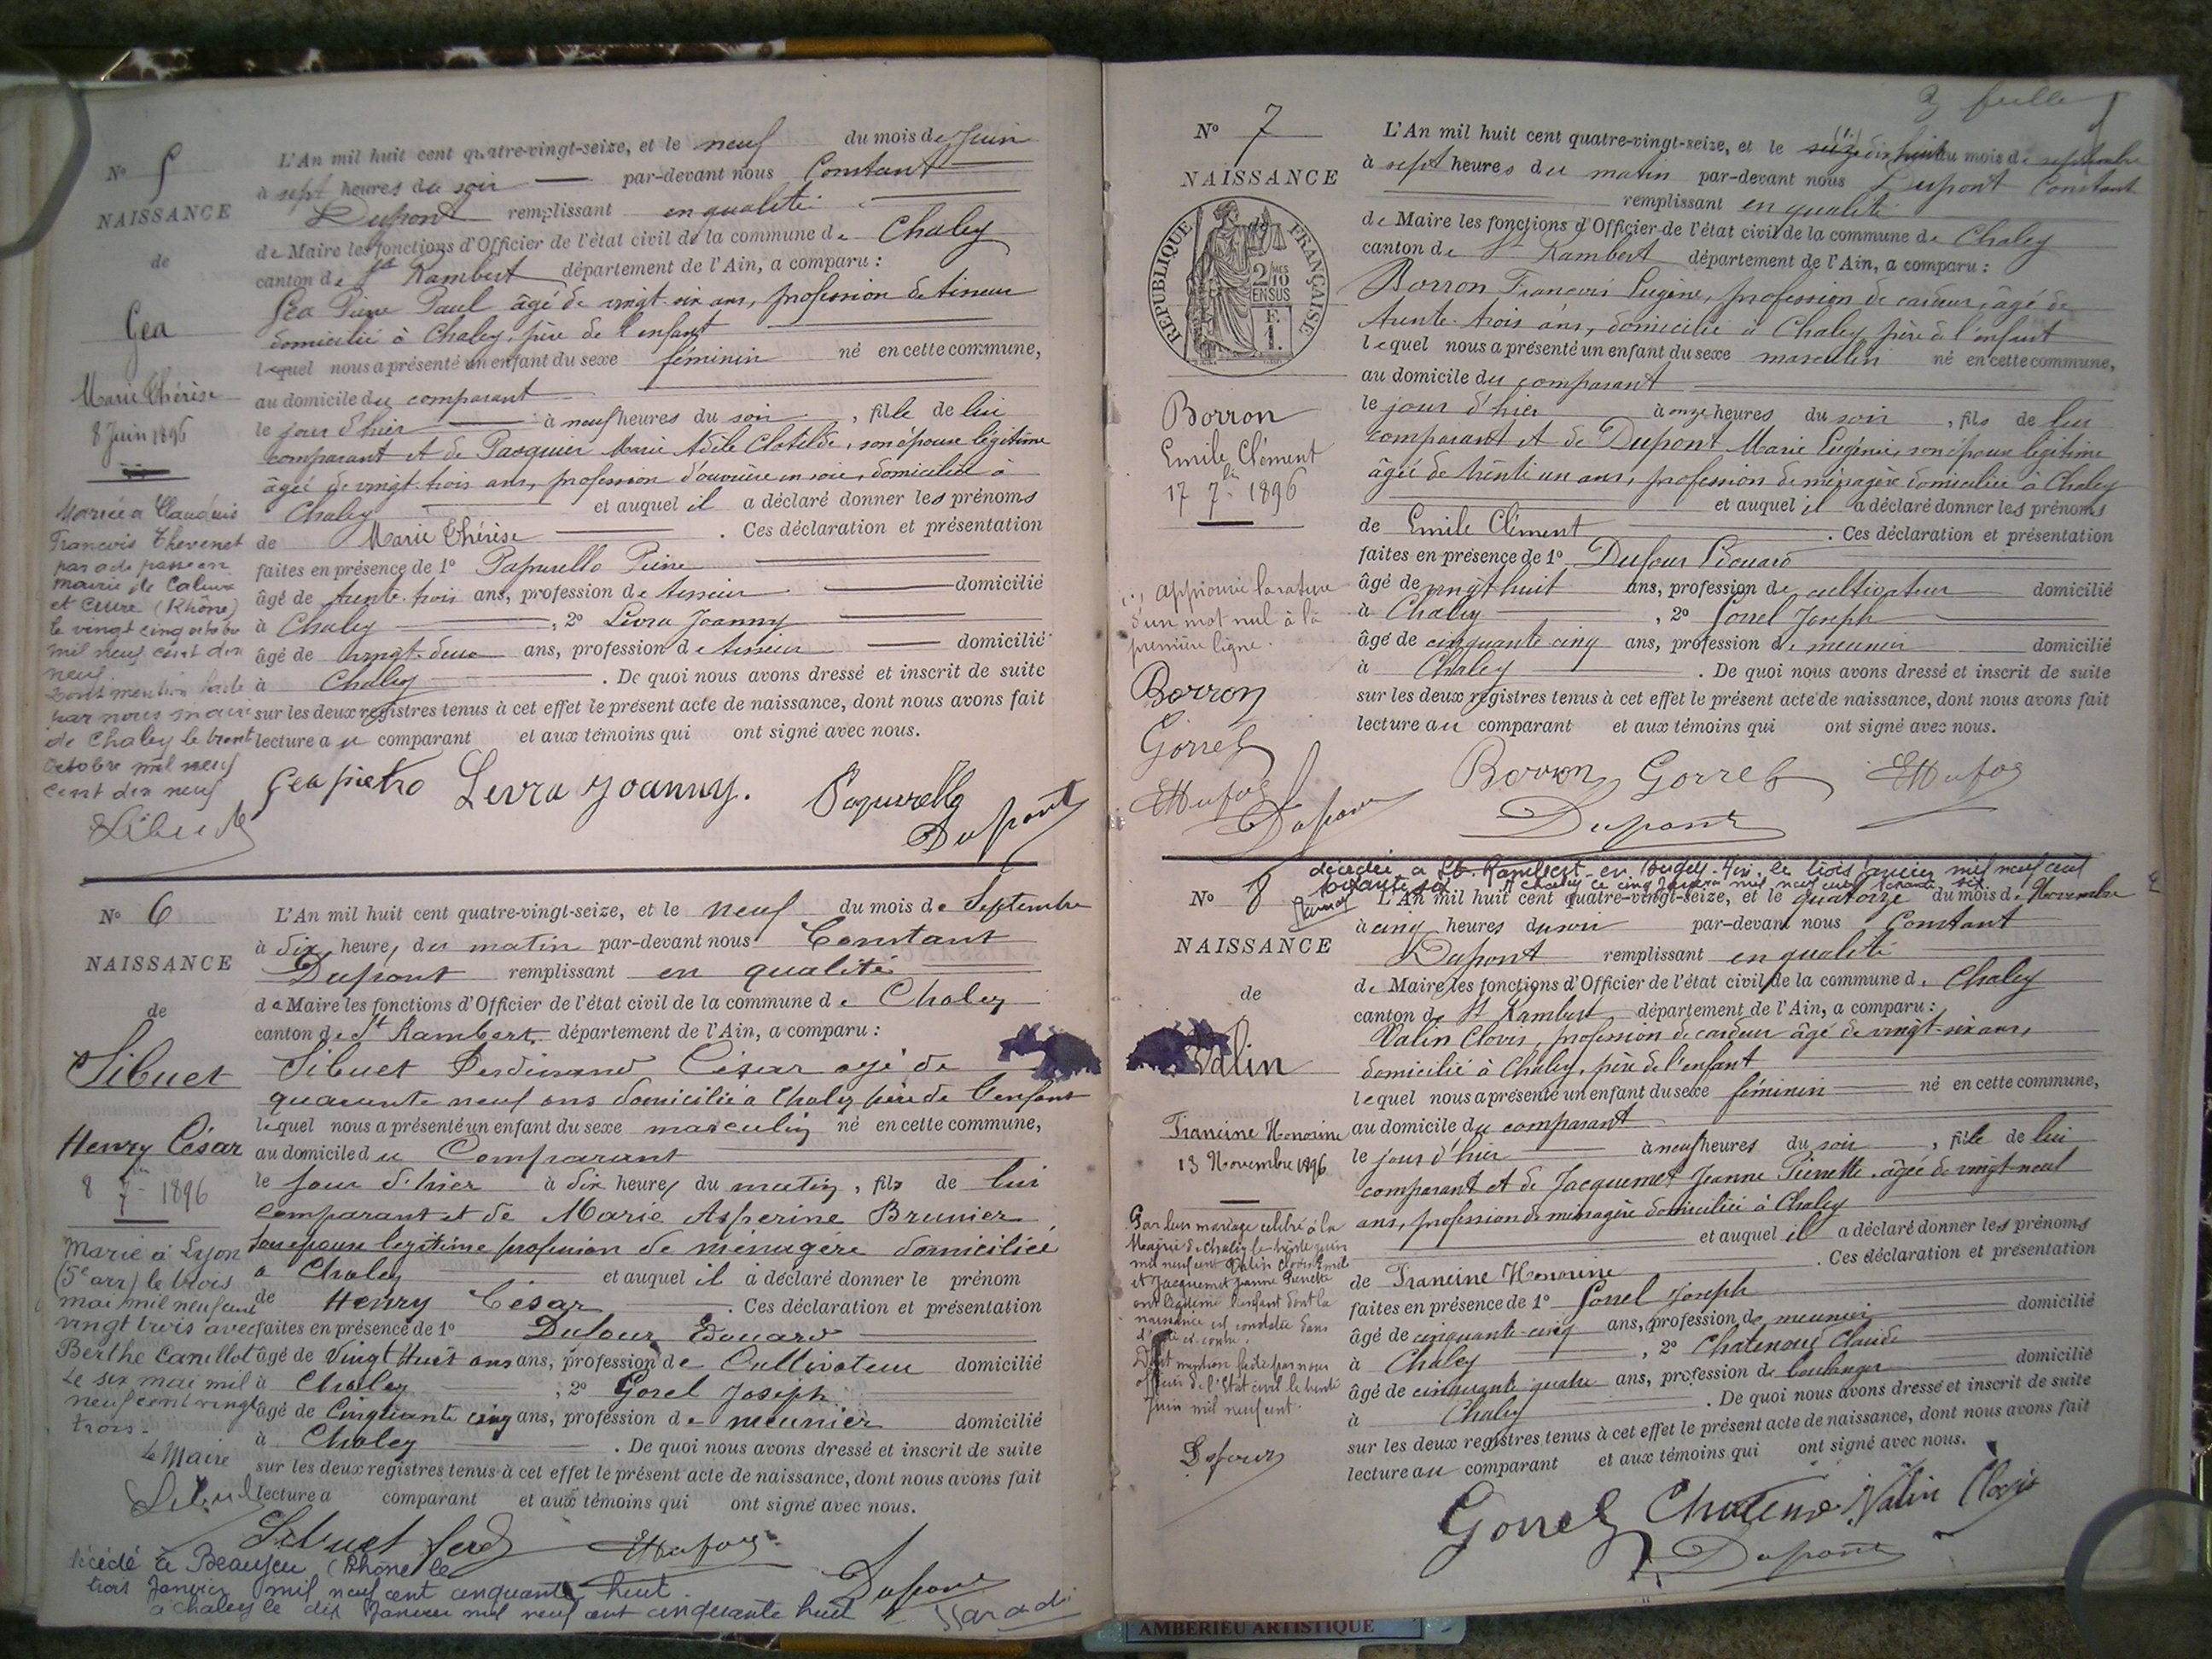 N° 5
NAISSANCE
de
Gea
Marie Thérèse
8 Juin 1896
Mariée à Claudius
François Thevenet
par acte passé en
mairie de Caluire
et Cuire (Rhône)
le vingt cinq octobre
mil neuf cent dix
neuf
Dont mention faite
par nous maire
de Chaley le trent
octobre mil neuf
cent dix neuf
Sibuet
L'An mil huit cent quatre-vingt-seize, et le neuf du mois de Juin
à sept heures du soir par-devant nous Constant
Dupont remplissant en qualité
de Maire les fonctions d'Officier de l'état civil de la commune de Chaley
canton de St Rambert département de l'Ain, a comparu :
Gea Pierre Paul âgé de vingt-six ans, profession de tisseur
domicilié à Chaley, père de l'enfant
lequel nous a présenté un enfant du sexe féminin né en cette commune,
au domicile du comparant
le jour d'hier à neuf heures du soir, fille de lui
comparant et de Pasquier Marie Adèle Clotilde, son épouse légitime
âgée de vingt-trois ans, profession d'ouvrière en soie, domiciliée à
Chaley et auquel il a déclaré donner les prénoms
de Marie Thérèse. Ces déclaration et présentation
faites en présence de 1° Papurello Pierre
âgé de trente-trois ans, profession de tisseur domicilié
à Chaley, 2° Levra Joanny
âgé de vingt-deux ans, profession de tisseur domicilié
à Chaley. De quoi nous avons dressé et inscrit de suite
sur les deux registres tenus à cet effet le présent acte de naissance, dont nous avons fait
lecture au comparant et aux témoins qui ont signé avec nous.
Gea pietro Levra Joanny. Papurello
Dupont
N° 6
NAISSANCE
de
Sibuet
Henry César
8 7bre 1896
Marié à Lyon
(5e arr) le trois
mai mil neuf cent
vingt trois avec
Berthe Canillot
Le six mai mil
neuf cent vingt
trois.
Le Maire
Sibuet
L'An mil huit cent quatre-vingt-seize, et le neuf du mois de Septembre
à dix heures du matin par-devant nous Constant
Dupont remplissant en qualité
de Maire les fonctions d'Officier de l'état civil de la commune de Chaley
canton de St Rambert, département de l'Ain, a comparu :
Sibuet Ferdinand César agé de
quarante neuf ans domicilié à Chaley père de l'enfant
lequel nous a présenté un enfant du sexe masculin né en cette commune,
au domicile du Comparant
le jour d'hier à dix heures du matin, fils de lui
comparant et de Marie Asperine Brunier
son epouse legitime profession de ménagère domiciliée
à Chaley et auquel il a déclaré donner le prénom
de Henry César. Ces déclaration et présentation
faites en présence de 1° Dufour Edouard
âgé de Vingt Huit ans ans, profession de Cultivateur domicilié
à Chaley, 2° Gorel Joseph
âgé de Cinquante cinq ans, profession de meunier domicilié
à Chaley. De quoi nous avons dressé et inscrit de suite
sur les deux registres tenus à cet effet le présent acte de naissance, dont nous avons fait
lecture a comparant et aux témoins qui ont signé avec nous.
Sibuet ferd
Dupont
décédé à Beaujeu (Rhône) le
trois Janvier mil neuf cent cinquante huit
à Chaley le dix Janvier mil neuf cent cinquante huit
N° 7
NAISSANCE
de
RÉPUBLIQUE FRANÇAISE
2/10MES
EN SUS
F.
1.
Borron
Emile Clément
17 7bre 1896
(1) Approuvé la rature
d'un mot nul à la
première ligne.
Borron
Gorrel
Dupont
L'An mil huit cent quatre-vingt-seize, et le seize (1) dix huit du mois de septembre
à sept heures du matin par-devant nous Dupont Constant
remplissant en qualité
de Maire les fonctions d'Officier de l'état civil de la commune de Chaley
canton de St Rambert département de l'Ain, a comparu :
Borron François Eugène, profession de cardeur, âgé de
trente-trois ans, domicilié à Chaley père de l'enfant
lequel nous a présenté un enfant du sexe masculin né en cette commune,
au domicile du comparant
le jour d'hier à onze heures du soir, fils de lui
comparant et de Dupont Marie Eugénie, son épouse légitime
âgée de trente un ans, profession de ménagère domiciliée à Chaley
et auquel il a déclaré donner les prénoms
de Emile Clément. Ces déclaration et présentation
faites en présence de 1° Dufour Edouard
âgé de vingt huit ans, profession de cultivateur domicilié
à Chaley, 2° Gorrel Joseph
âgé de cinquante cinq ans, profession de meunier domicilié
à Chaley. De quoi nous avons dressé et inscrit de suite
sur les deux registres tenus à cet effet le présent acte de naissance, dont nous avons fait
lecture au comparant et aux témoins qui ont signé avec nous.
Borron Gorrel
Dupont
décédée à St-Rambert-en-Bugey-Ain, le trois janvier mil neuf cent
soixante six. A Chaley le cinq janvier mil neuf cent soixante six
N° 8
NAISSANCE
de
Valin
Francine Honorine
13 Novembre 1896
Par leur mariage célébré à la
Mairie de Chaley le trente juin
mil neuf cent Valin Clovis
et Jacquemet Jeanne Pierrette
ont légitimé l'enfant dont la
naissance est constatée dans
l'acte ci-contre.
Dont mention faite par nous
officier de l'Etat civil le trente
Juin mil neuf cent.
Dufour
L'An mil huit cent quatre-vingt-seize, et le quatorze du mois de Novembre
à cinq heures du soir par-devant nous Constant
Dupont remplissant en qualité
de Maire les fonctions d'Officier de l'état civil de la commune de Chaley
canton de St Rambert département de l'Ain, a comparu :
Valin Clovis, profession de cardeur âgé de vingt-six ans,
domicilié à Chaley, père de l'enfant
lequel nous a présenté un enfant du sexe féminin né en cette commune,
au domicile du comparant
le jour d'hier à neuf heures du soir, fille de lui
comparant et de Jacquemet Jeanne Pierrette âgée de vingt-neuf
ans, profession de ménagère domiciliée à Chaley
et auquel il a déclaré donner les prénoms
de Francine Honorine. Ces déclaration et présentation
faites en présence de 1° Gorrel Joseph
âgé de cinquante-cinq ans, profession de meunier domicilié
à Chaley, 2° Chatenoud Claude
âgé de cinquante quatre ans, profession de boulanger domicilié
à Chaley. De quoi nous avons dressé et inscrit de suite
sur les deux registres tenus à cet effet le présent acte de naissance, dont nous avons fait
lecture au comparant et aux témoins qui ont signé avec nous.
Gorrel Valin Clovis
Dupont
AMBERIEU ARTISTIQUE